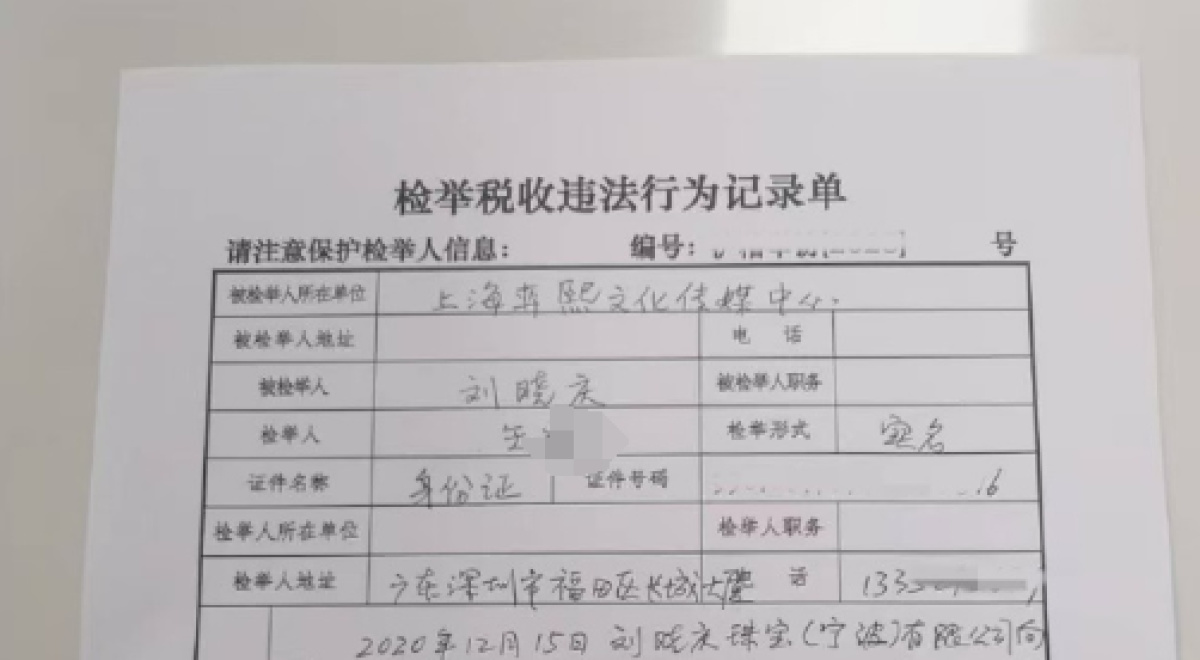 检举税收违法行为记录单
请注意保护检举人信息: 编号: 号
被检举人所在单位 上海弈熙文化传媒中心
被检举人地址 电 话
被检举人 刘晓庆 被检举人职务
检举人 检举形式 实名
证件名称 身份证 证件号码 16
检举人所在单位 检举人职务
检举人地址 广东深圳市福田区长城大厦 话 133
2020年12月15日刘晓庆珠宝(宁波)有限公司向